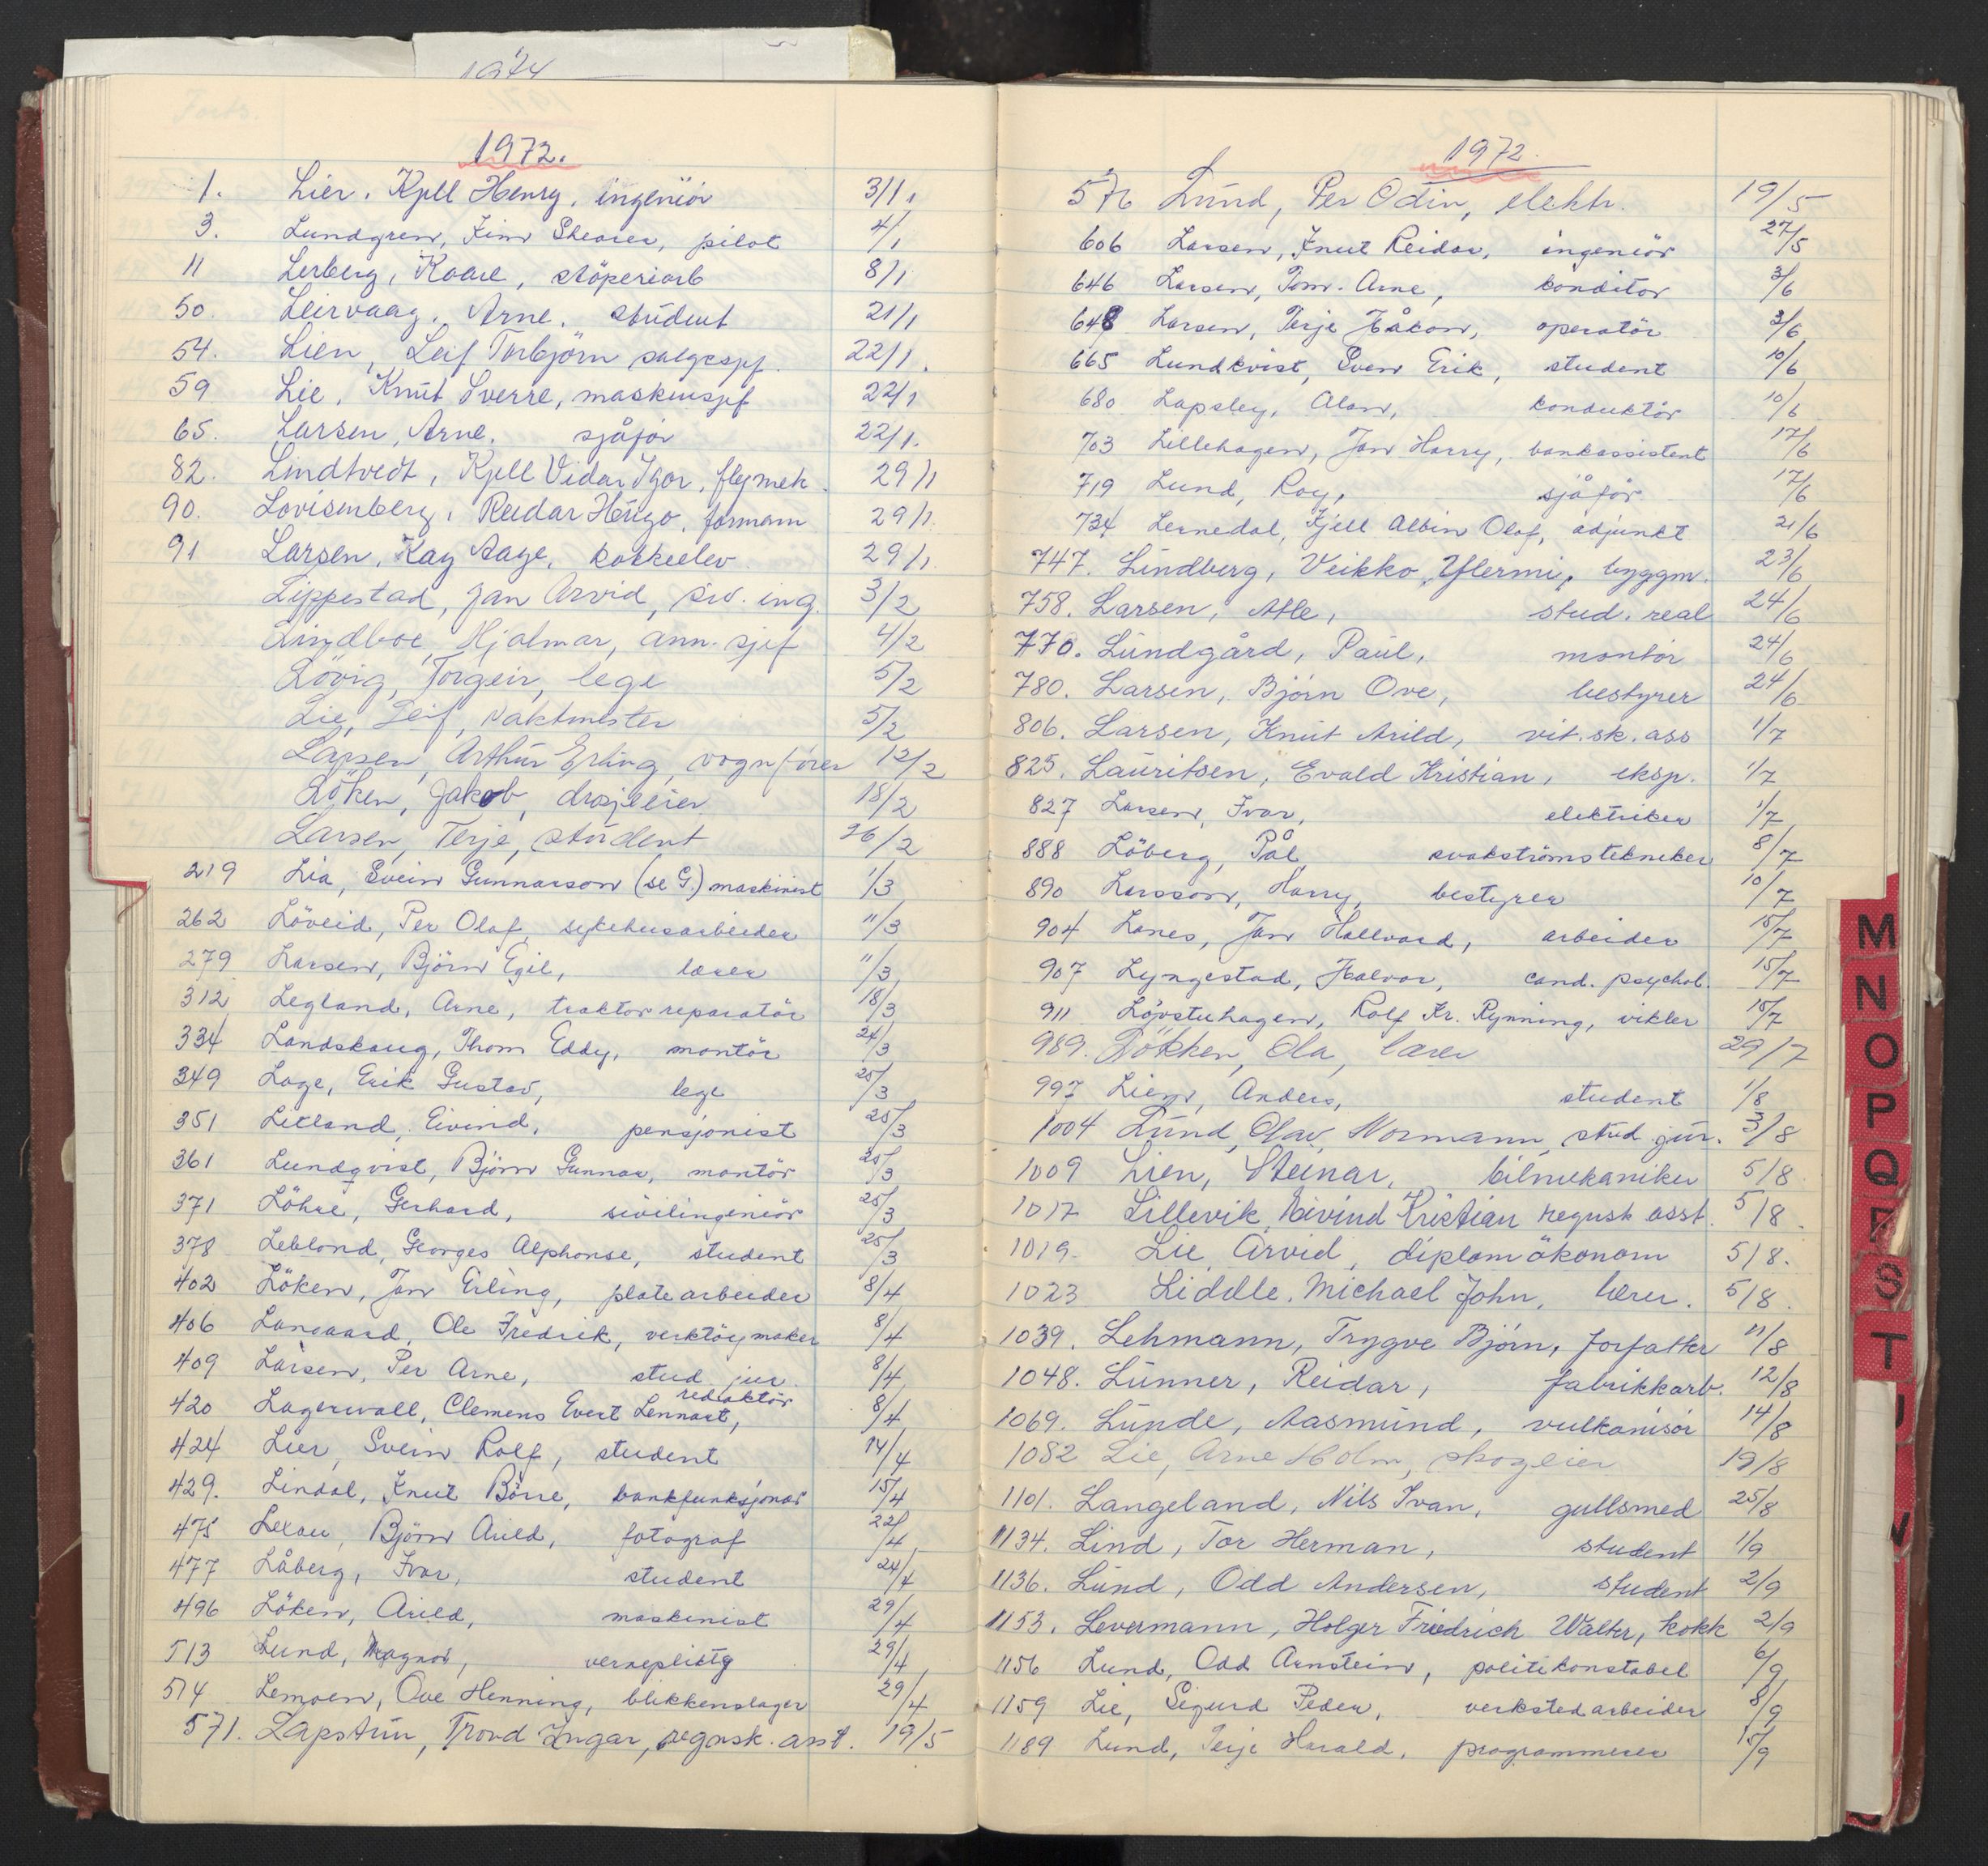 1974
1972.
1. Lier, Kjell Henry, ingeniör 3/1.
3. Lundgren, Jim Shearer, pilot 4/1
11 Lerberg, Kaare, stöperiarb 8/1
50. Leirvaag, Arne, student 21/1
54. Lien, Leif Torbjörn salgssjef. 22/1.
59 Lie, Knut Sverre, maskinsjef 22/1
65. Larsen, Arne, sjåför 22/1.
82. Lindtvedt, Kjell Vidar Igor, flymek. 29/1
90. Lovisenberg, Reidar Hugo, formann 29/1.
91 Larsen, Kay Aage, kokkeelev 29/1.
Lippestad, Jan Arvid, siv. ing. 3/2
Lindboe, Hjalmar, ann. sjef 4/2
Lövig, Torgeir, lege 5/2
Lie, Leif, vaktmester 5/2
Larsen, Arthur Erling, vognförer 12/2
Löken, Jakob, drosjeeier 18/2
Larsen, Terje, student 26/2
219 Lia, Svein Gunnarson (se G.) maskinist 1/3
262 Löveid, Per Olaf, sykehusarbeider 11/3
279 Larsen, Björn Egil, lærer 11/3
312 Legland, Arne, traktorreparatör 18/3
334 Landskaug, Thom Eddy, montör 24/3
349 Lage, Erik Gustav, lege 25/3
351 Litland, Eivind, pensjonist 25/3
361 Lundqvist, Björn Gunnar, montör 25/3
371 Löhre, Gerhard, sivilingeniör 25/3
378 Leblond, Georges Alphonse, student 25/3
402 Löken, Jan Erling, platearbeider 8/4
406 Langaard, Ole Fredrik, verktöymaker 8/4
409 Larsen, Per Arne, stud. jur. 8/4
420 Lagerwall, Clemens Evert Lennart, redaktör 8/4
424 Lier, Svein Rolf, student 14/4
429. Lindal, Knut Börre, bankfunksjonær 15/4
475 Lexau, Björn Arild, fotograf 22/4
477 Låberg, Ivar, student 24/4
496 Löken, Arild, maskinist 29/4
513 Lund, Magnar, vernepliktig 29/4
514 Lemoen, Ove Henning, blikkenslager 29/4
571. Lapstun, Trond Ingar, regnsk. asst. 19/5
1972.
576 Lund, Per Odin, elektr. 19/5
606 Larsen, Knut Reidar, ingeniör 27/5
646 Larsen, Tom. Arne, konditor 3/6
648 Larsen, Terje Håkon, operatör 3/6
665 Lundkvist, Sven Erik, student 10/6
680 Lapsley, Alan, konduktör 10/6
703 Lillehagen, Jan Harry, bankassistent 17/6
719 Lund, Roy, sjåför 17/6
734 Lernedal, Kjell Albin Olof, adjunkt 21/6
747. Lundberg, Veikko, Ylermi, byggm. 23/6
758. Larsen, Atle, stud. real 24/6
770. Lundgård, Paul, montör 24/6
780. Larsen, Björn Ove, bestyrer 24/6
806. Larsen, Knut Arild, vit. sk. ass 1/7
825. Lauritsen, Evald Kristian, eksp. 1/7
827 Larsen, Ivar, elektriker 1/7
888 Löberg, Pål, svakströmstekniker 8/7
890 Larsson, Harry, bestyrer 10/7
904 Lanes, Jan Hallvard, arbeider 15/7
907 Lyngestad, Halvor, cand. psychol. 15/7
911 Lövstuhagen, Rolf Kr. Rynning, vikler 15/7
989. Lökken, Ola, lærer 29/7
997 Lien, Anders, student 1/8
1004 Lund, Olav Normann, stud. jur. 3/8
1009 Lien, Steinar, bilmekaniker 5/8
1017 Lillevik, Eivind Kristian regnsk. asst. 5/8.
1019. Lie, Arvid, diplomökonom 5/8.
1023 Liddle, Michael John, lærer. 5/8.
1039. Lehmann, Trygve Björn, forfatter 11/8
1048. Lunner, Reidar, fabrikkarb. 12/8
1069. Lunde, Aasmund, vulkanisör 14/8
1082 Lie, Arne Holm, skogeier 19/8
1101. Langeland, Nils Ivan, gullsmed 25/8
1134. Lind, Tor Herman, student 1/9
1136. Lund, Odd Andersen, student 2/9
1153. Levermann, Holger Friedrich Walter, kokk 2/9
1156 Lund, Odd Arnstein, politikonstabel 6/9
1159 Lie, Sigurd Peder, verkstedarbeider 8/9
1189 Lund, Terje Harald, programmerer 15/9
M
N
O
P
Q
R
S
T
U
V